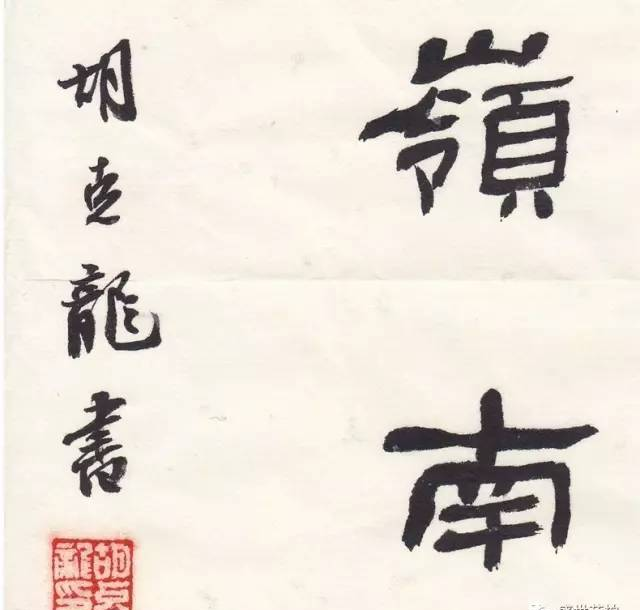 嶺南
胡克龍書